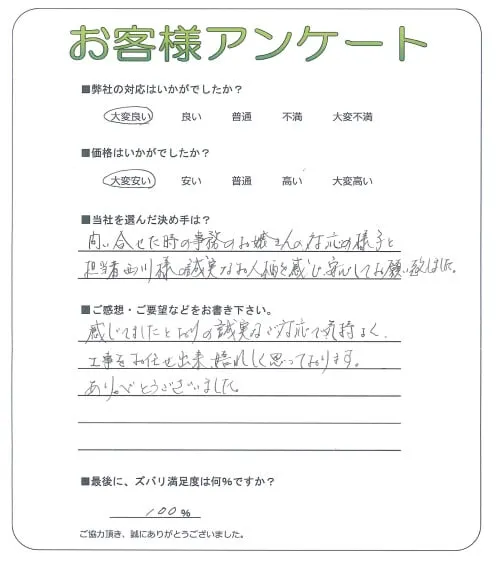 お客様アンケート
■弊社の対応はいかがでしたか?
大変良い 良い 普通 不満 大変不満
■価格はいかがでしたか?
大変安い 安い 普通 高い 大変高い
■当社を選んだ決め手は?
問い合せた時の事務のお嬢さんの対応の様子と
担当者西川様の誠実なお人柄を感じ安心してお願い致しました。
■ご感想・ご要望などをお書き下さい。
感じてましたとおりの誠実なご対応で気持よく、
工事をお任せ出来、嬉しく思っております。
ありがとうございました。
■最後に、ズバリ満足度は何%ですか?
100%
ご協力頂き、誠にありがとうございました。